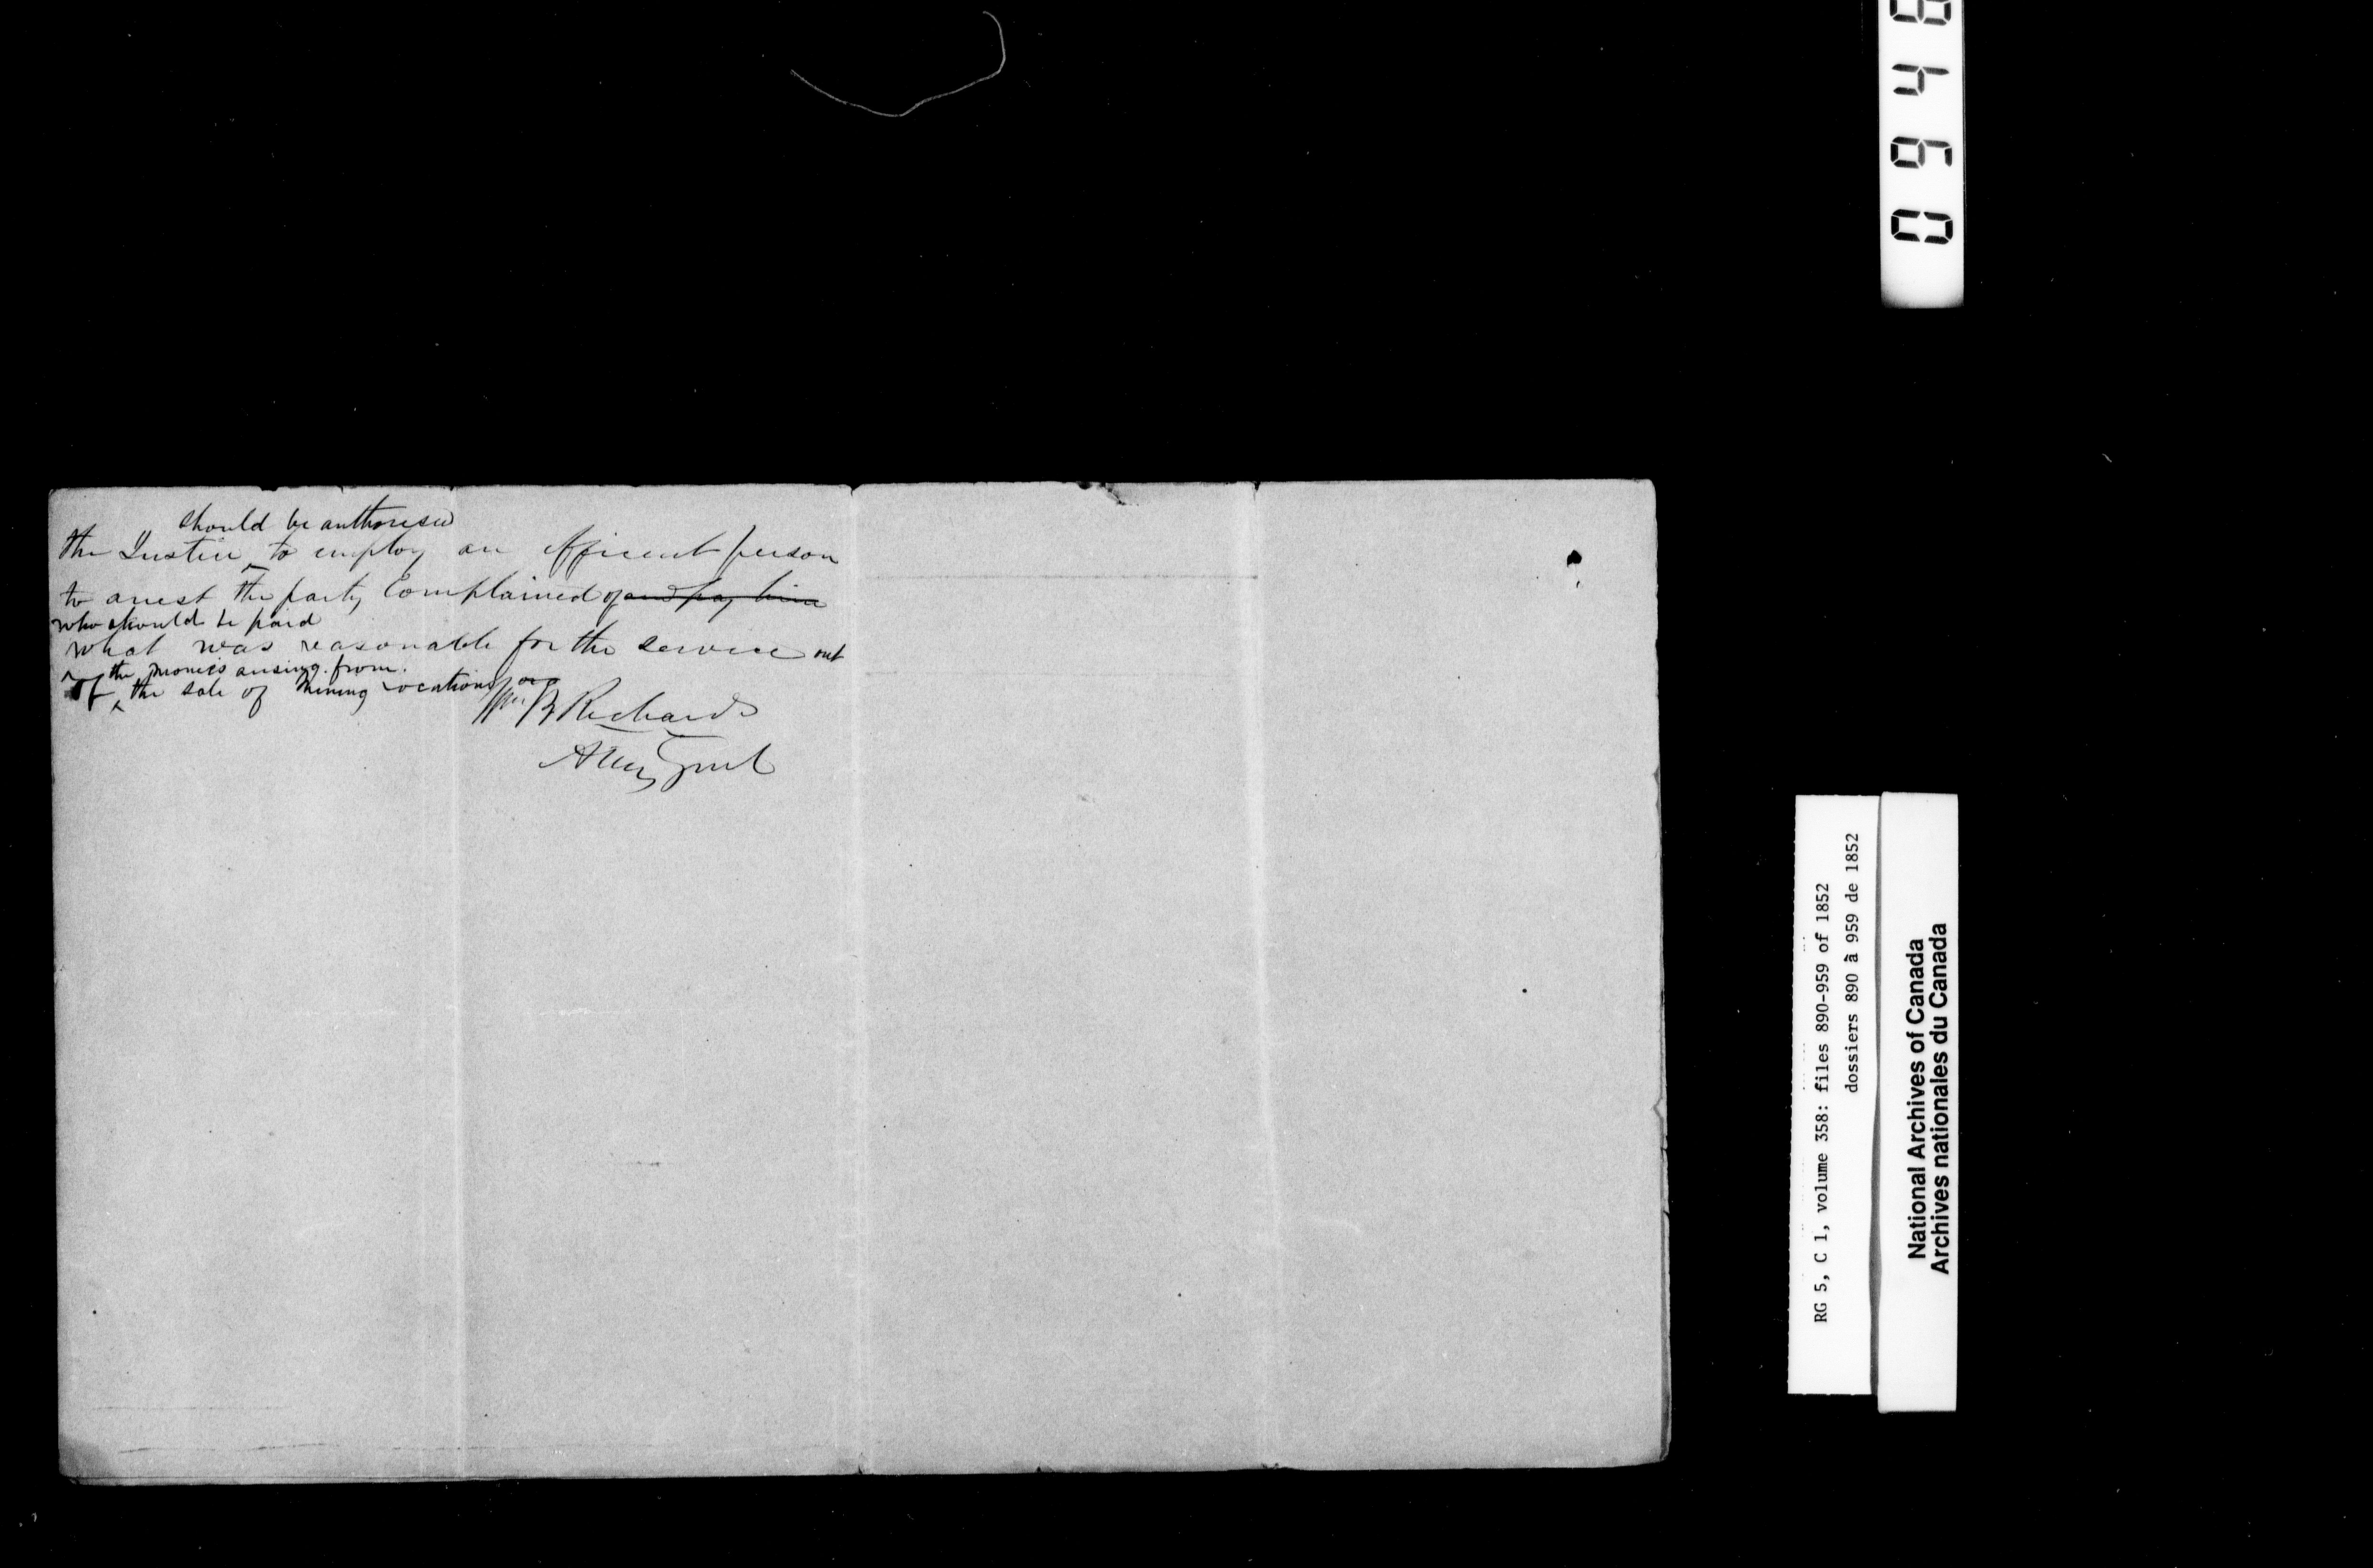 should be authorised
the Justice to employ an efficient person
to arrest the party complained of and pay him
who should be paid
what was reasonable for the service out
the monies arising from
of the sale of mining locations
Wm B Richards
Atty Genl
0948
RG 5, C 1, volume 358: files 890-959 of 1852
dossiers 890 à 959 de 1852
National Archives of Canada
Archives nationales du Canada